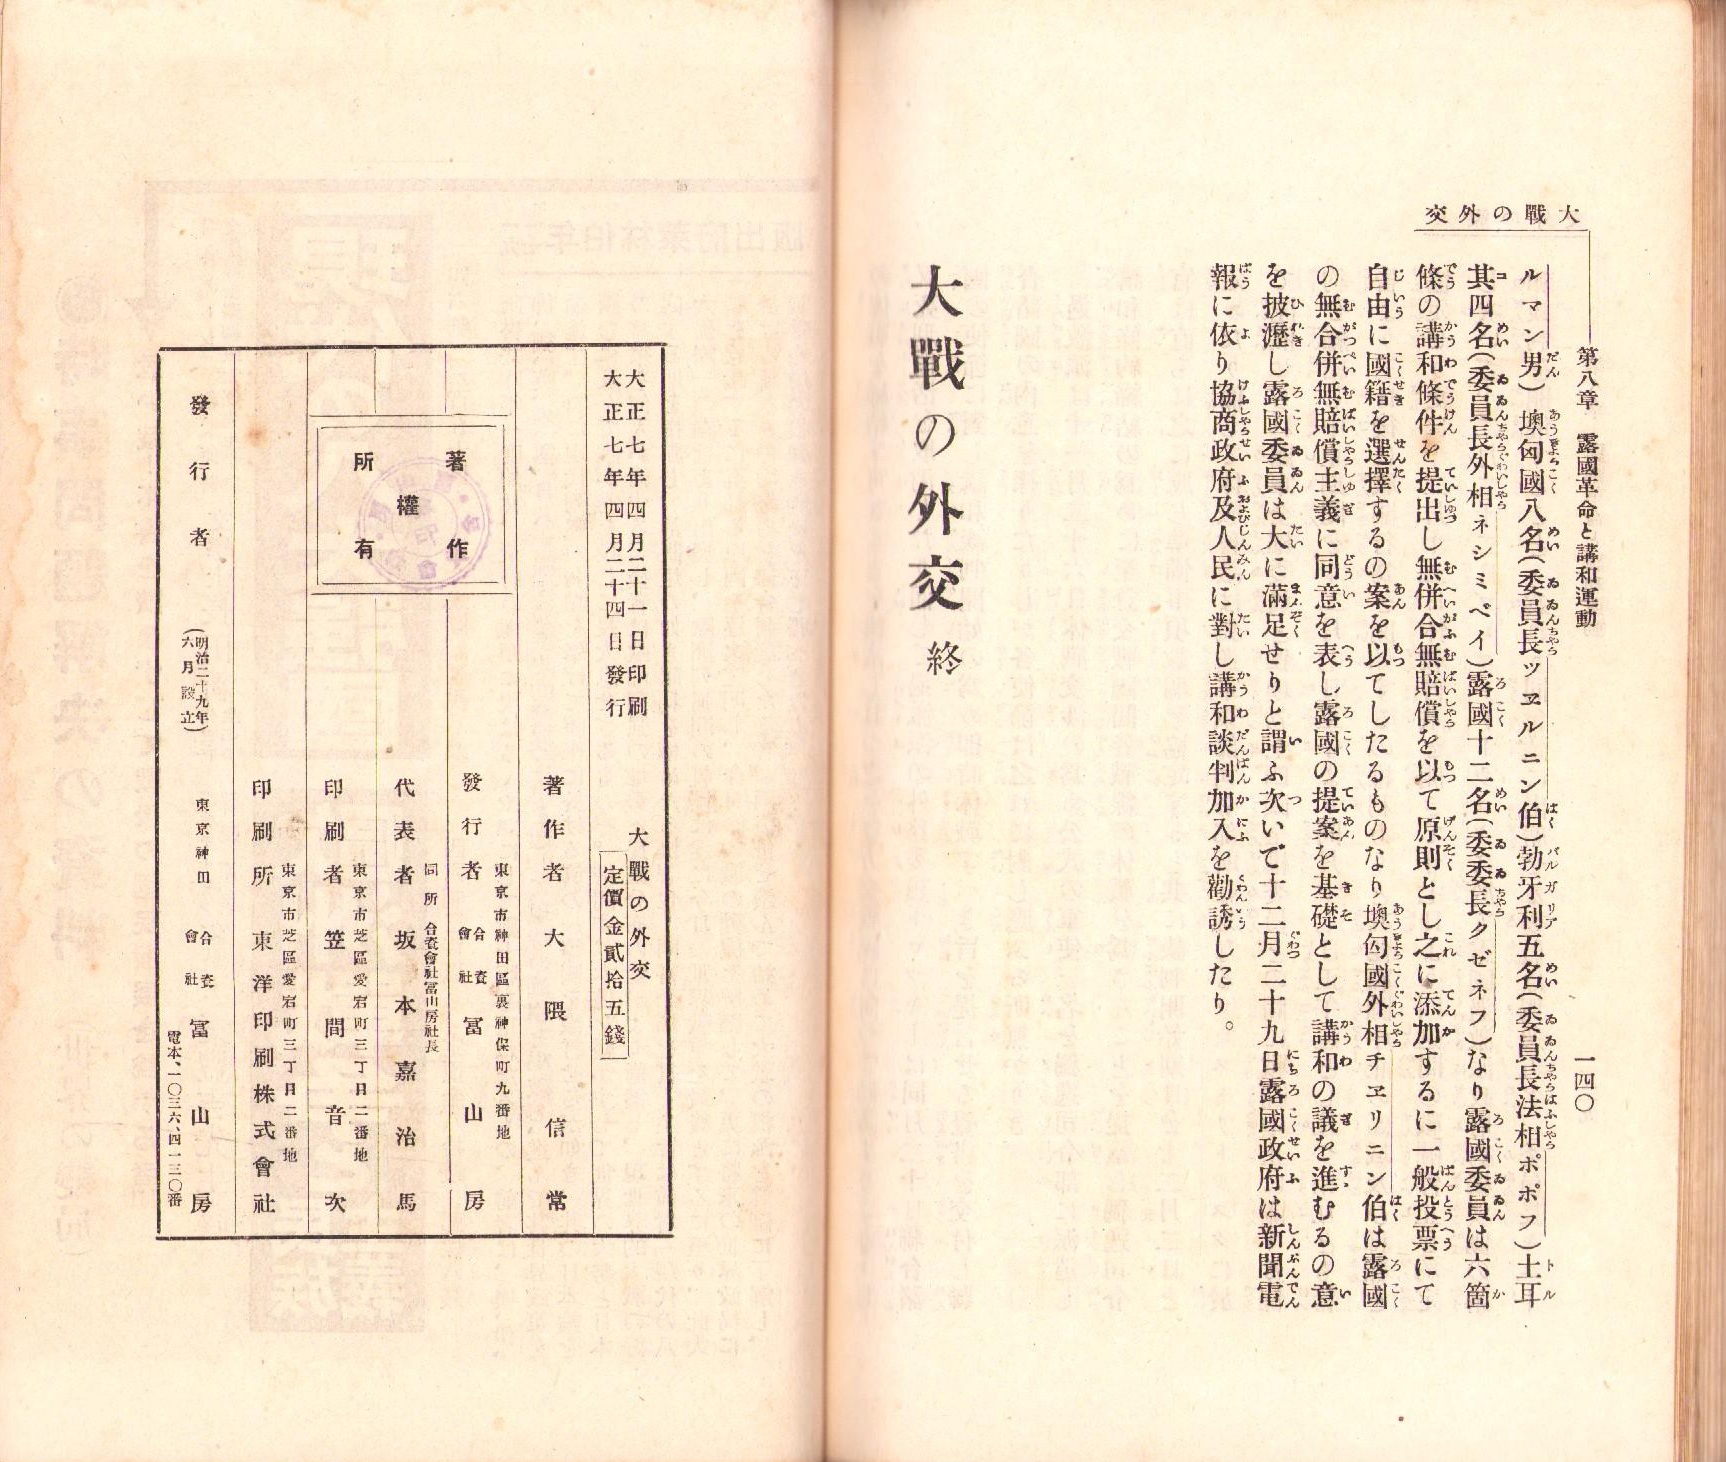 大戰の外交
第八章 露國革命と講和運動
一四〇
ルマン男)墺匈國八名(委員長ツェルニン伯)勃牙利五名(委員長法相ポポフ)土耳
其四名(委員長外相ネシミベイ)露國十二名(委委長クゼネフ)なり露國委員は六箇
條の講和條件を提出し無併合無賠償を以て原則とし之に添加するに一般投票にて
自由に國籍を選擇するの案を以てしたるものなり墺匈國外相チェリニン伯は露國
の無合併無賠償主義に同意を表し露國の提案を基礎として講和の議を進むるの意
を披瀝し露國委員は大に滿足せりと謂ふ次いで十二月二十九日露國政府は新聞電
報に依り協商政府及人民に對し講和談判加入を勸誘したり。
大戰の外交 終
大正七年四月二十一日印刷
大正七年四月二十四日發行
大戰の外交
定價金貳拾五錢
著作者 大隈信常
東京市神田區裏神保町九番地
發行者 合資會社 冨山房
同所 合資會社冨山房社長
代表者 坂本嘉治馬
東京市芝區愛宕町三丁目二番地
印刷者 笠間音次
東京市芝區愛宕町三丁目二番地
印刷所 東洋印刷株式會社
著作
權
所有
發行者
(明治二十九年
六月設立)
東京神田
合資會社 冨山房
電本、一〇三六、四一三〇番